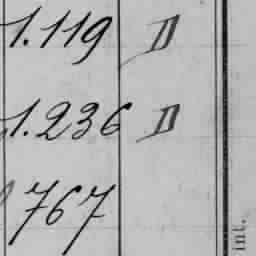 1.119 D
1.236 D
767
int.